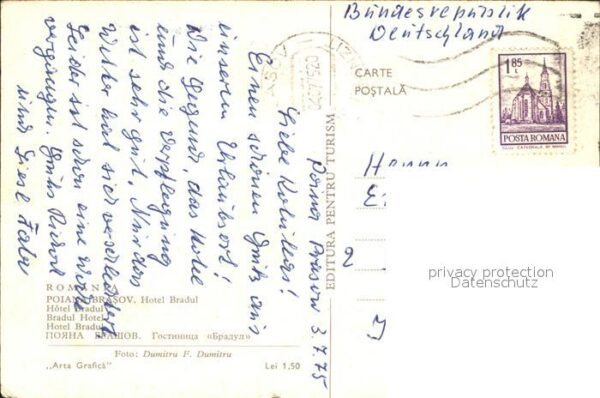 Bundesrepublik
Deutschland
CARTE
POȘTALĂ
1,85 L
POSTA ROMANA
Poiana Brasov 3.7.75
Liebe Kollikers!
Einen schönen Gruß aus
unserem Urlaubsort!
Die Gegend, das Hotel
und die Verpflegung
ist sehr gut. Nur das
Wetter hat sich verschlechtert
Leider ist schon eine Woche
vergangen. Gruß
und Liesl
EDITURA PENTRU TURISM
2
privacy protection
Datenschutz
ROMANIA
POIANA BRAȘOV. Hotel Bradul
Hôtel Bradul
Bradul Hotel
Hotel Bradul
ПОЯНА БРАШОВ. Гостиница «Брадул»
Foto: Dumitru F. Dumitru
„Arta Grafică"
Lei 1,50